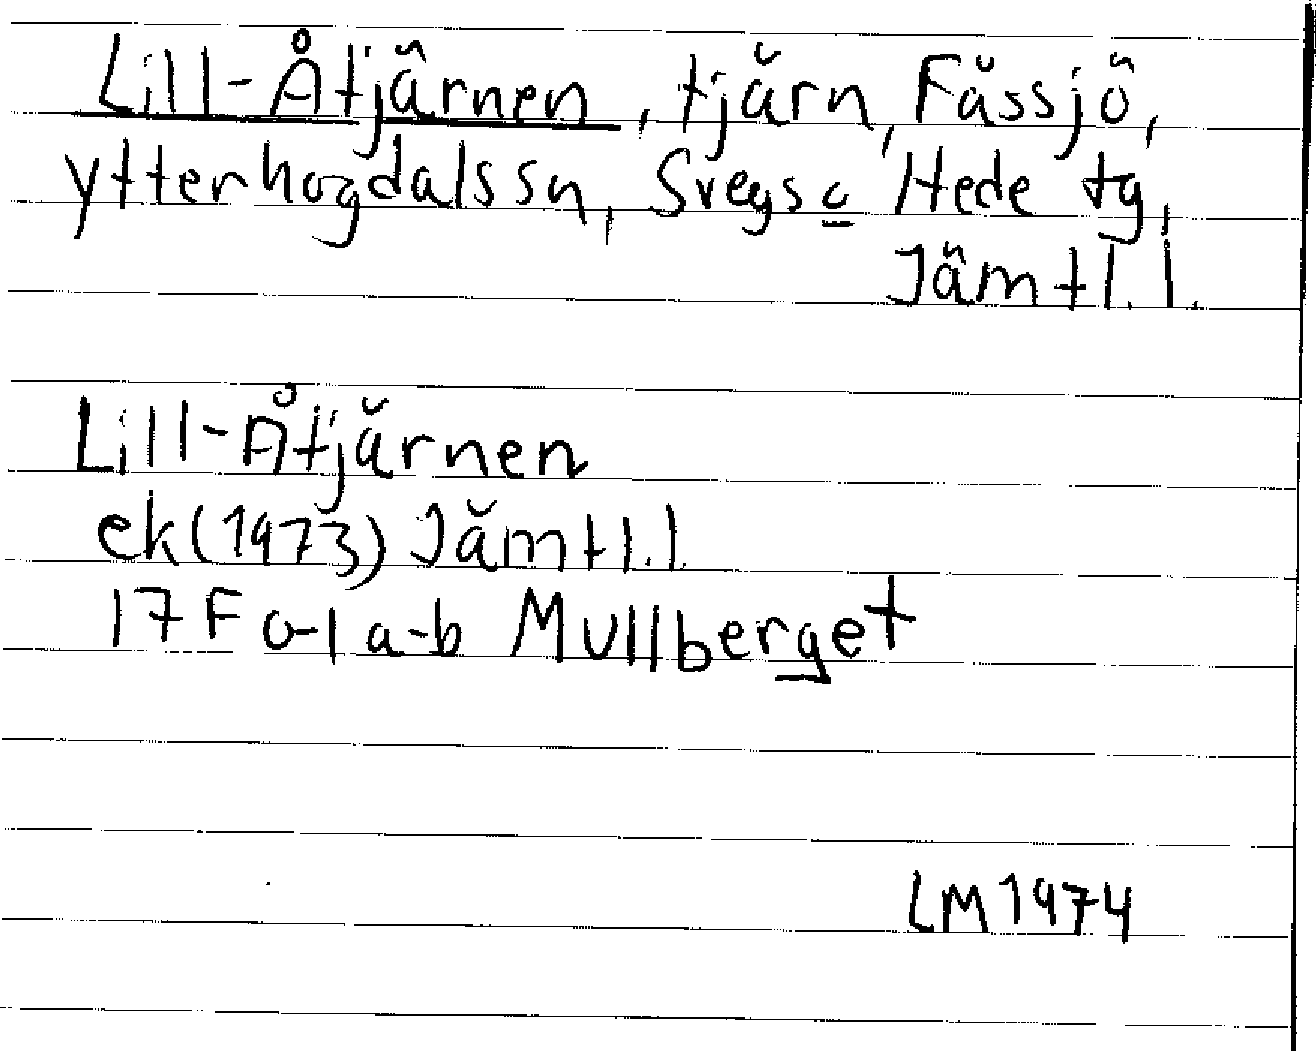 Lill-Åtjärnen, tjärn, Fåssjö,
Ytterhogdals sn, Svegs o Hede tg,
Jämtl. l.
Lill-Åtjärnen
ek (1973) Jämtl. l.
17F 0-1 a-b Mullberget
LM 1974